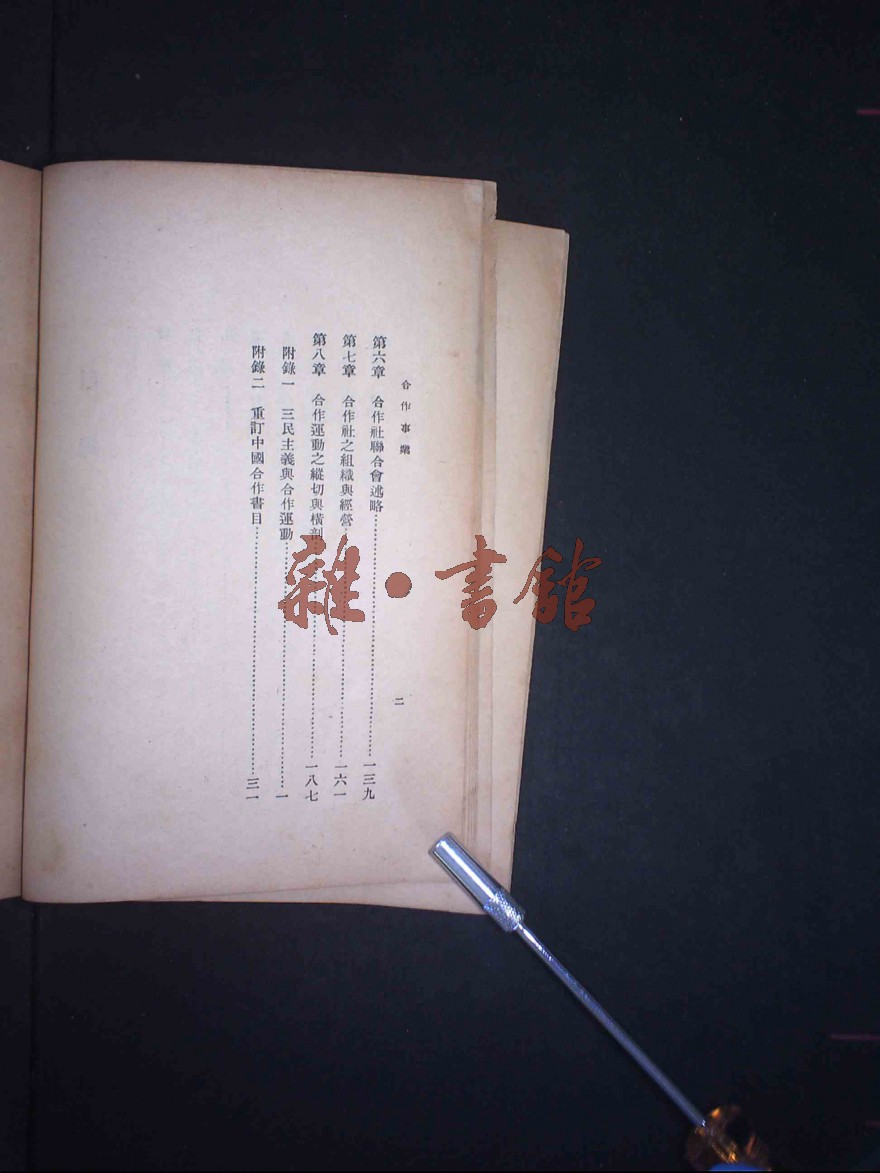 合作事業
二
第六章 合作社聯合會述略…………一三九
第七章 合作社之組織與經營…………一六一
第八章 合作運動之縱切與橫剖…………一八七
附錄一 三民主義與合作運動…………一
附錄二 重訂中國合作書目…………三一
雜·書館